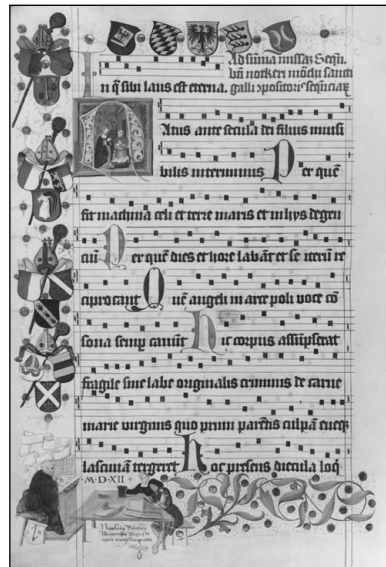 Ad sum̄a missaꝫ Seqn̄.
btī notkeri mōchi sancti
galli ꝯpositoris seq̄nciaꝝ
In q̄ sibi laus est eterna.
Natus ante secula dei filius inuisi
bilis interminus Per quē
fit machina celi et terre maris et in hys degen
ciū Per quē dies et hore labāt et se iterū re
ciprocant Quē angeli in arce poli voce cō
sona semꝑ canūt Hic corpus assūpserat
fragile sine labe originalis criminis de carne
marie virginis quo primi parētis culpā eueqꝫ
lasciuiam tergeret Hoc presens diecula loq̄
·M·D·XII·